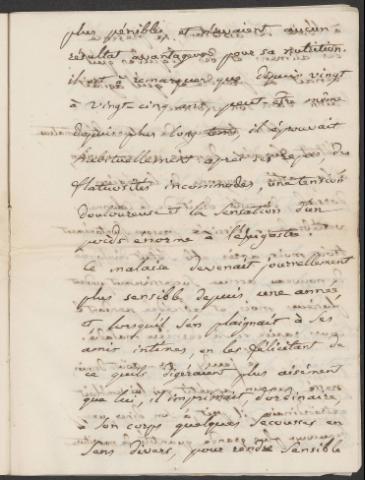 plus pénibles et n'avaient aucun
résultat avantageux pour sa nutrition.
il est à remarquer que depuis vingt
à vingt cinq ans, peut être même
depuis plus long tems, il éprouvait
habituellement après ses repas des
flatuosités incommodes, une tension
douloureuse et la sensation d'un
poids enorme à l'épigastre.
Ce malaise devenait journellement
plus sensible depuis une année
et lorsqu'il s'en plaignait à ses
amis intimes, en les félicitant de
ce qu'ils digéraient plus aisément
que lui, il imprimait d'ordinaire,
à son corps quelques secousses en
sens divers, pour rendre sensible